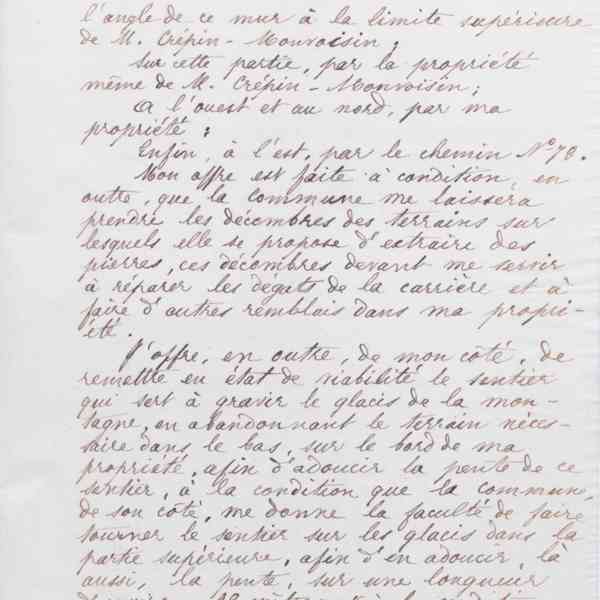 l'angle de ce mur à la limite supérieure
de M. Crépin-Monvoisin;
Sur cette partie, par la propriété
même de M. Crépin-Monvoisin;
A l'ouest et au nord, par ma
propriété;
Enfin, à l'est, par le chemin Nº 70.
Mon offre est faite à condition, en
outre, que la commune me laissera
prendre les décombres des terrains sur
lesquels elle se propose d'extraire des
pierres, ces décombres devant me servir
à réparer les dégats de la carrière et à
faire d'autres remblais dans ma propri-
été.
J'offre, en outre, de mon côté, de
remettre en état de viabilité le sentier
qui sert à gravir le glacis de la mon-
tagne, en abandonnant le terrain néces-
saire dans le bas, sur le bord de ma
propriété, afin d'adoucir la pente de ce
sentier, à la condition que la commune,
de son côté, me donne la faculté de faire
tourner le sentier sur les glacis dans la
partie supérieure, afin d'en adoucir, là
aussi, la pente, sur une longueur